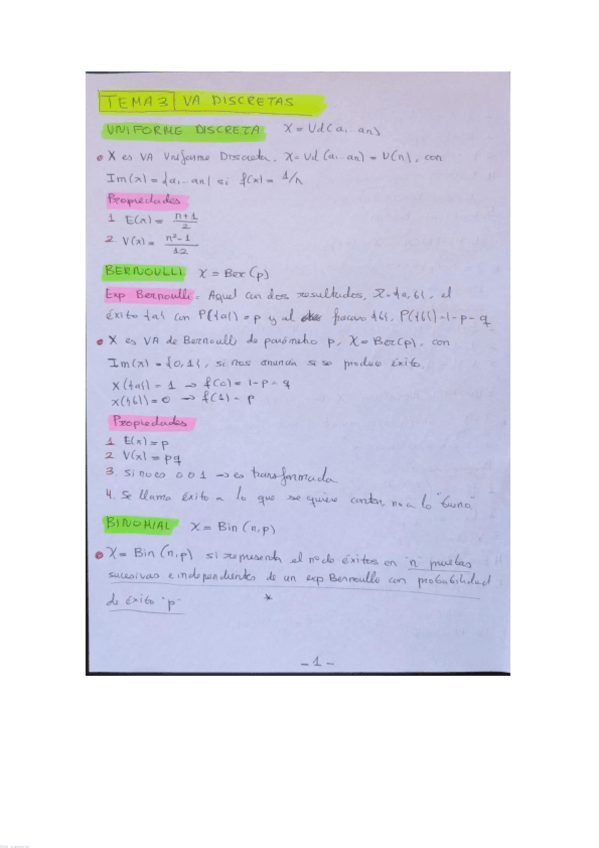 TEMA 3 VA DISCRETAS
UNIFORME DISCRETA X = Ud(a,..an)
• X es VA Uniforme Discreta, X=Ud(a,..an) = U(n), con
Im(x) = {a,..an} si f(x) = 1/n
Propiedades
1 E(x) = n+1/2
2 V(x) = n²-1/12
BERNOULLI X = Ber(p)
Exp Bernoulli = Aquel con dos resultados, Z={a,b}, el
éxito {a} con P({a}) = p y al fracaso {b}, P({b})=1-p=q
• X es VA de Bernoulli de parámetro p, X=Ber(p), con
Im(x) = {0,1}, si nos anuncia si se produce éxito.
X({a}) = 1 → f(0) = 1-p = q
X({b}) = 0 → f(1) = p
Propiedades
1 E(x) = p
2 V(x) = pq
3. Si no es 0 o 1 → es transformada
4. Se llama éxito a lo que se quiere contar, no a lo "bueno".
BINOMIAL X = Bin(n,p)
• X = Bin(n,p) si representa el nº de éxitos en "n" pruebas
sucesivas e independientes de un exp Bernoulli con probabilidad
de éxito "p" *
- 1 -